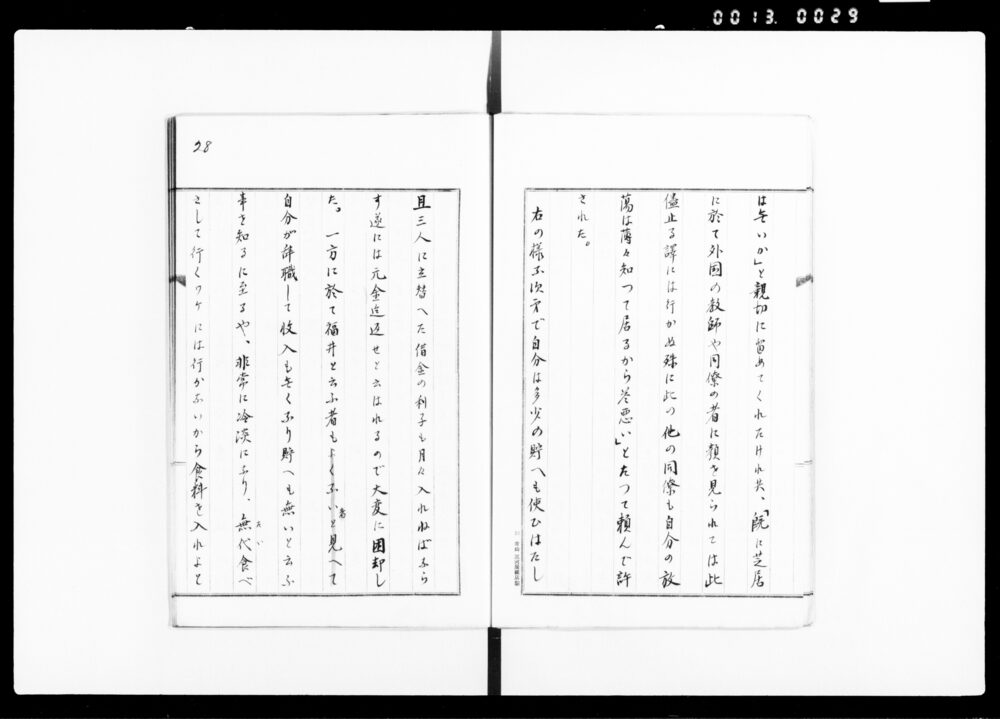 0013.0029
は無いか」と親切に留めてくれたけれ共、「既に芝居
に於て外国の教師や同僚の者に顔を見られては此
儘止る譯には行かぬ殊に此の他の同僚も自分の放
蕩は薄々知つて居るから茲悪い」とたつて頼んで許
された。
右の様な次第で自分は多少の貯へも使ひはたし
28
且三人に立替へた借金の利子も月々入れねばなら
す遂には元金迄返せと云はれるので大変に困却し
た。一方に於て福井と云ふ者もよくない者と見へて
自分が辞職して收入も無くなり貯へも無いと云ふ
事を知るに至るや、非常に冷淡になり、無代食べ
さして行くワケには行かないから食料を入れよと